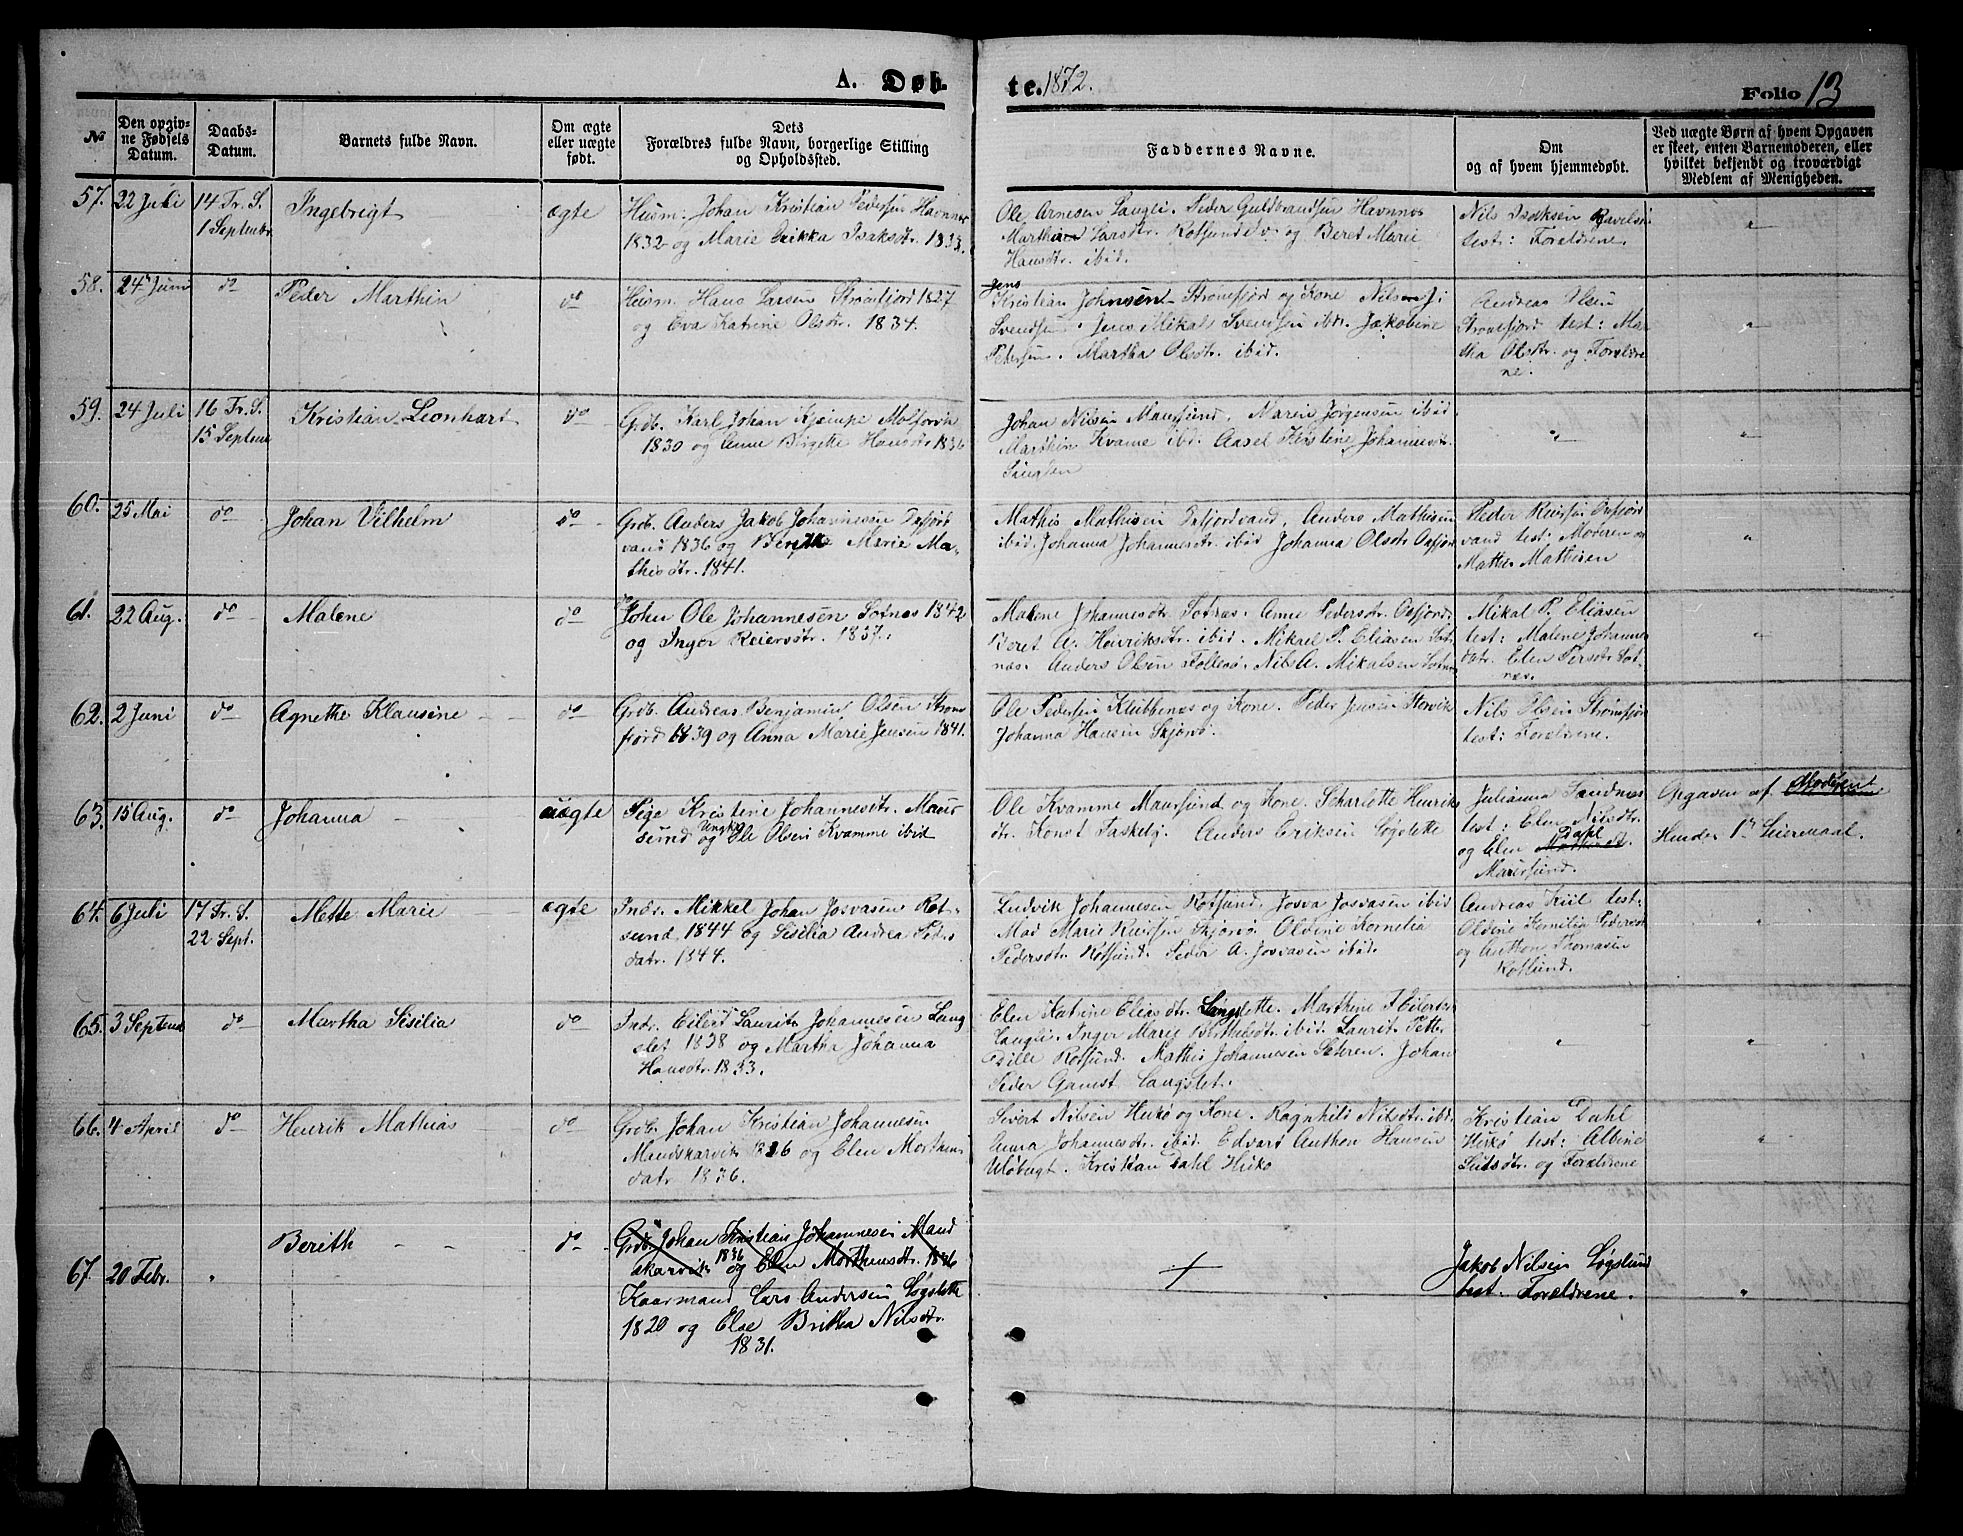 A. Døb-
te. 1872.
Folio 13
№
Den opgiv-
ne Fødsels
Datum.
Daabs-
Datum.
Barnets fulde Navn.
Om ægte
eller uægte
født.
Dets
Forældres fulde Navn, borgerlige Stilling
og Opholdssted.
Faddernes Navne.
Om
og af hvem hjemmedøbt.
Ved uægte Børn af hvem Opgaven
er skeet, enten Barnemoderen, eller
hvilket bekjendt og troværdigt
Medlem af Menigheden.
57. 22 Juli
14 Tr. S.
1 Septembr.
Ingebrigt
ægte
Husm. Johan Kristian Pedersen Havnnes
1832 og Marie Erikka Isaksdtr. 1833.
Ole Arnesen Langli. Peder Guldbrandsen Havnnes
Larsdtr. Rotsundelv. og Beret Marie
Hansdtr. ibid.
Nils Isaksen
test: Forældrene.
"
58. 24 Juni
do
Peder Marthin
do
Husm. Hans Larsen Strømfjord 1827
og Eva Katrine Olsdtr. 1834.
Jens
Kristian Johnsen Strømfjord og Kone
Svendsen. Jens Mikal Svendsen ibd. Jakobine
Petersen. Martha Olsdtr. ibid.
Andreas Olsen
Strømfjord test: Mar-
tha Olsdtr. og Forældre
ne.
"
59. 24 Juli
16 Tr. S.
15 Septem
Kristian Leonhart
do
Grdb. Karl Johan Kjempe
1830 og Anne Birgitte Hansdtr 1836
Johan Nilsen Maursund. Maren Jørgensen ibid
Marthin Kvame ibd. Aasel Kirstine Johannesdtr.
"
"
60. 25 Mai
do
Johan Vilhelm
do
Grdb. Anders Jakob Johannesen Oxfjord
vand 1836 og Berith Marie Ma-
thisdtr. 1841.
Mathis Mathisen Oxfjordvand. Anders Mathisen
ibid. Johanna Johannesdtr. ibid Johanna Olsdtr Oxfjor
Peder Oxfjord
vand test: Moderen og
Mathis Mathisen
"
61. 22 Aug.
do
Malene
do
John Ole Johannesen Sotnæs 1842
og Inger Reiersdtr. 1837.
Malene Johannesdtr Sotnæs. Anne Pedersdtr. Oxfjord
Beret A. Henriksdtr. ibid. Mikael P. Eliasen Sot-
næs. Anders Olsen Follesø. Nils A. Mikalsen Sotnæs
Mikal P. Eliasen
test: Malene Johannes
datr. Elen Persdtr. Sot-
næs.
"
62. 2 Juni
do
Agnethe Klausine
do
Grdb. Andreas Benjamin Olsen Strøm
fjord 1839 og Anna Marie Jensen 1841.
Ole Pedersen Klubbenes og Kone. Peder Jensen Storvik
Johanna Hansen Skjervø.
Nils Olsen Strømfjor
test: Forældrene.
63. 15 Aug.
do
Johanna
uægte
Pige Kristine Johannesdtr. Maur
sund og Ungk. Ole Olsen Kvamme ibid
Ole Kvamme Maursund og Kone. Scharlotte Henriks
dtr. Anders Eriksen Løgslette
Julianna Sandnes
test: Elen Nilsdtr.
og Elen Dahl
Maursund.
Opgaven af Moderen
Hendes 1ste Leiermaal.
64. 6 Juli
17 Tr. S.
22 Sept.
Mette Marie
ægte
Indr. Mikkel Johan Josvasen Rot-
sund 1844 og Sisilia Andrea Peders
datr. 1844.
Ludvik Johannesen Rotsund. Josva Josvasen ibid
Mad Marie Skjervø. Oldine Kornelia
Pedersdtr. Rotsund. Peder A. Josvasen ibid.
Andreas Kiil test:
Oldine Kornilia Pedersdtr
og Anthon Thomasen
Rotsund.
"
65. 3 Septemb
do
Martha Sisilia
do
Indr. Eilert Laurits Johannesen Lang
slet 1838 og Martha Johanna
Hansdtr. 1833.
Elen Katrine Eliasdtr. Langslette. Marthine Heilersen
Langli. Inger Marie ibid. Laurits Petter
Dille Rotsund. Mathis Johannesen Sæteren. Johan
Peder Gamst Langslet.
"
"
66. 4 April
do
Henrik Mathias
do
Grdb. Johan Kristian Johannesen
Mandskarvik 1826 og Elen Mortens
datr 1836.
Sivert Nilsen Hukø og Kone. Ragnhild Nilsdtr. ibd.
Anna Johannesdtr. ibid. Edvard Anthon Hansen
Uløbugt. Kristian Dahl Hukø
Kristian Dahl
Hukø test: Albine
og Forældrene
"
67. 20 Febr.
"
Berith
do
Grdb. Johan Kristian Johannesen Mand
skarvik 1836 og Elen Morthensdtr. 1836
Kaarmand Lars Andersen Løgslett
1820 og Else Britha Nilsdtr.
1831.
+
Jakob Nilsen Løgslund
test. Forældrene.
"